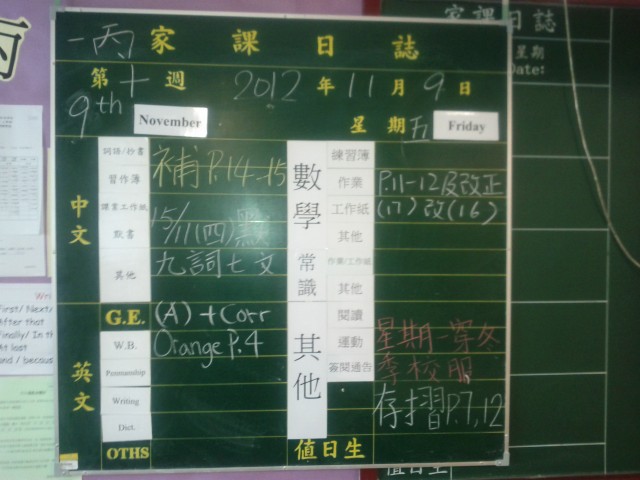 一丙 家課日誌
第十週 2012年11月9日
9th November 星期五 Friday
中文
詞語/抄書
習作簿 補P.14-15
課書工作紙
默書 15/11(四)默
其他 九詞七文
G.E. (A)+Corr
英文
W.B. Orange P.4
Penmanship
Writing
Dict.
OTHS
數學
練習簿
作業 P.11-12及改正
工作紙 (17)改(16)
其他
常識
作業/工作紙
其他
其他
閱讀
運動 星期一穿冬
簽閱通告 季校服
存摺P.7,12
值日生
家課日誌
星期
Date:
值日生
First/ Next/
After that
Finally/ In th
At last
and / becous
Wri
丙